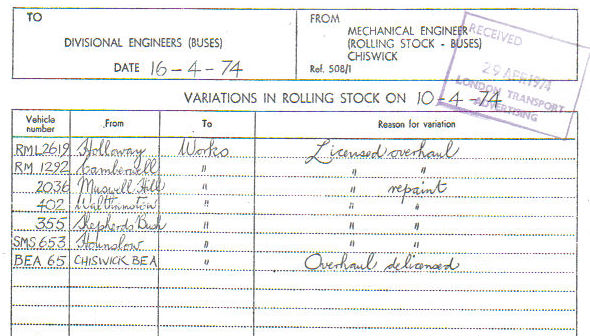 TO
DIVISIONAL ENGINEERS (BUSES)
DATE 16-4-74
FROM
MECHANICAL ENGINEER
(ROLLING STOCK - BUSES)
CHISWICK
Ref. 508/1
RECEIVED
29 APR 1974
LONDON TRANSPORT
ADVERTISING
VARIATIONS IN ROLLING STOCK ON 10-4-74
Vehicle number From To Reason for variation
RML2619 Holloway Works Licensed overhaul
RM 1292 Camberwell " " "
2036 Muswell Hill " " repaint
402 Walthamstow " " "
355 Shepherds Bush " " "
SMS 653 Hounslow " " "
BEA 65 CHISWICK BEA " Overhaul delicensed